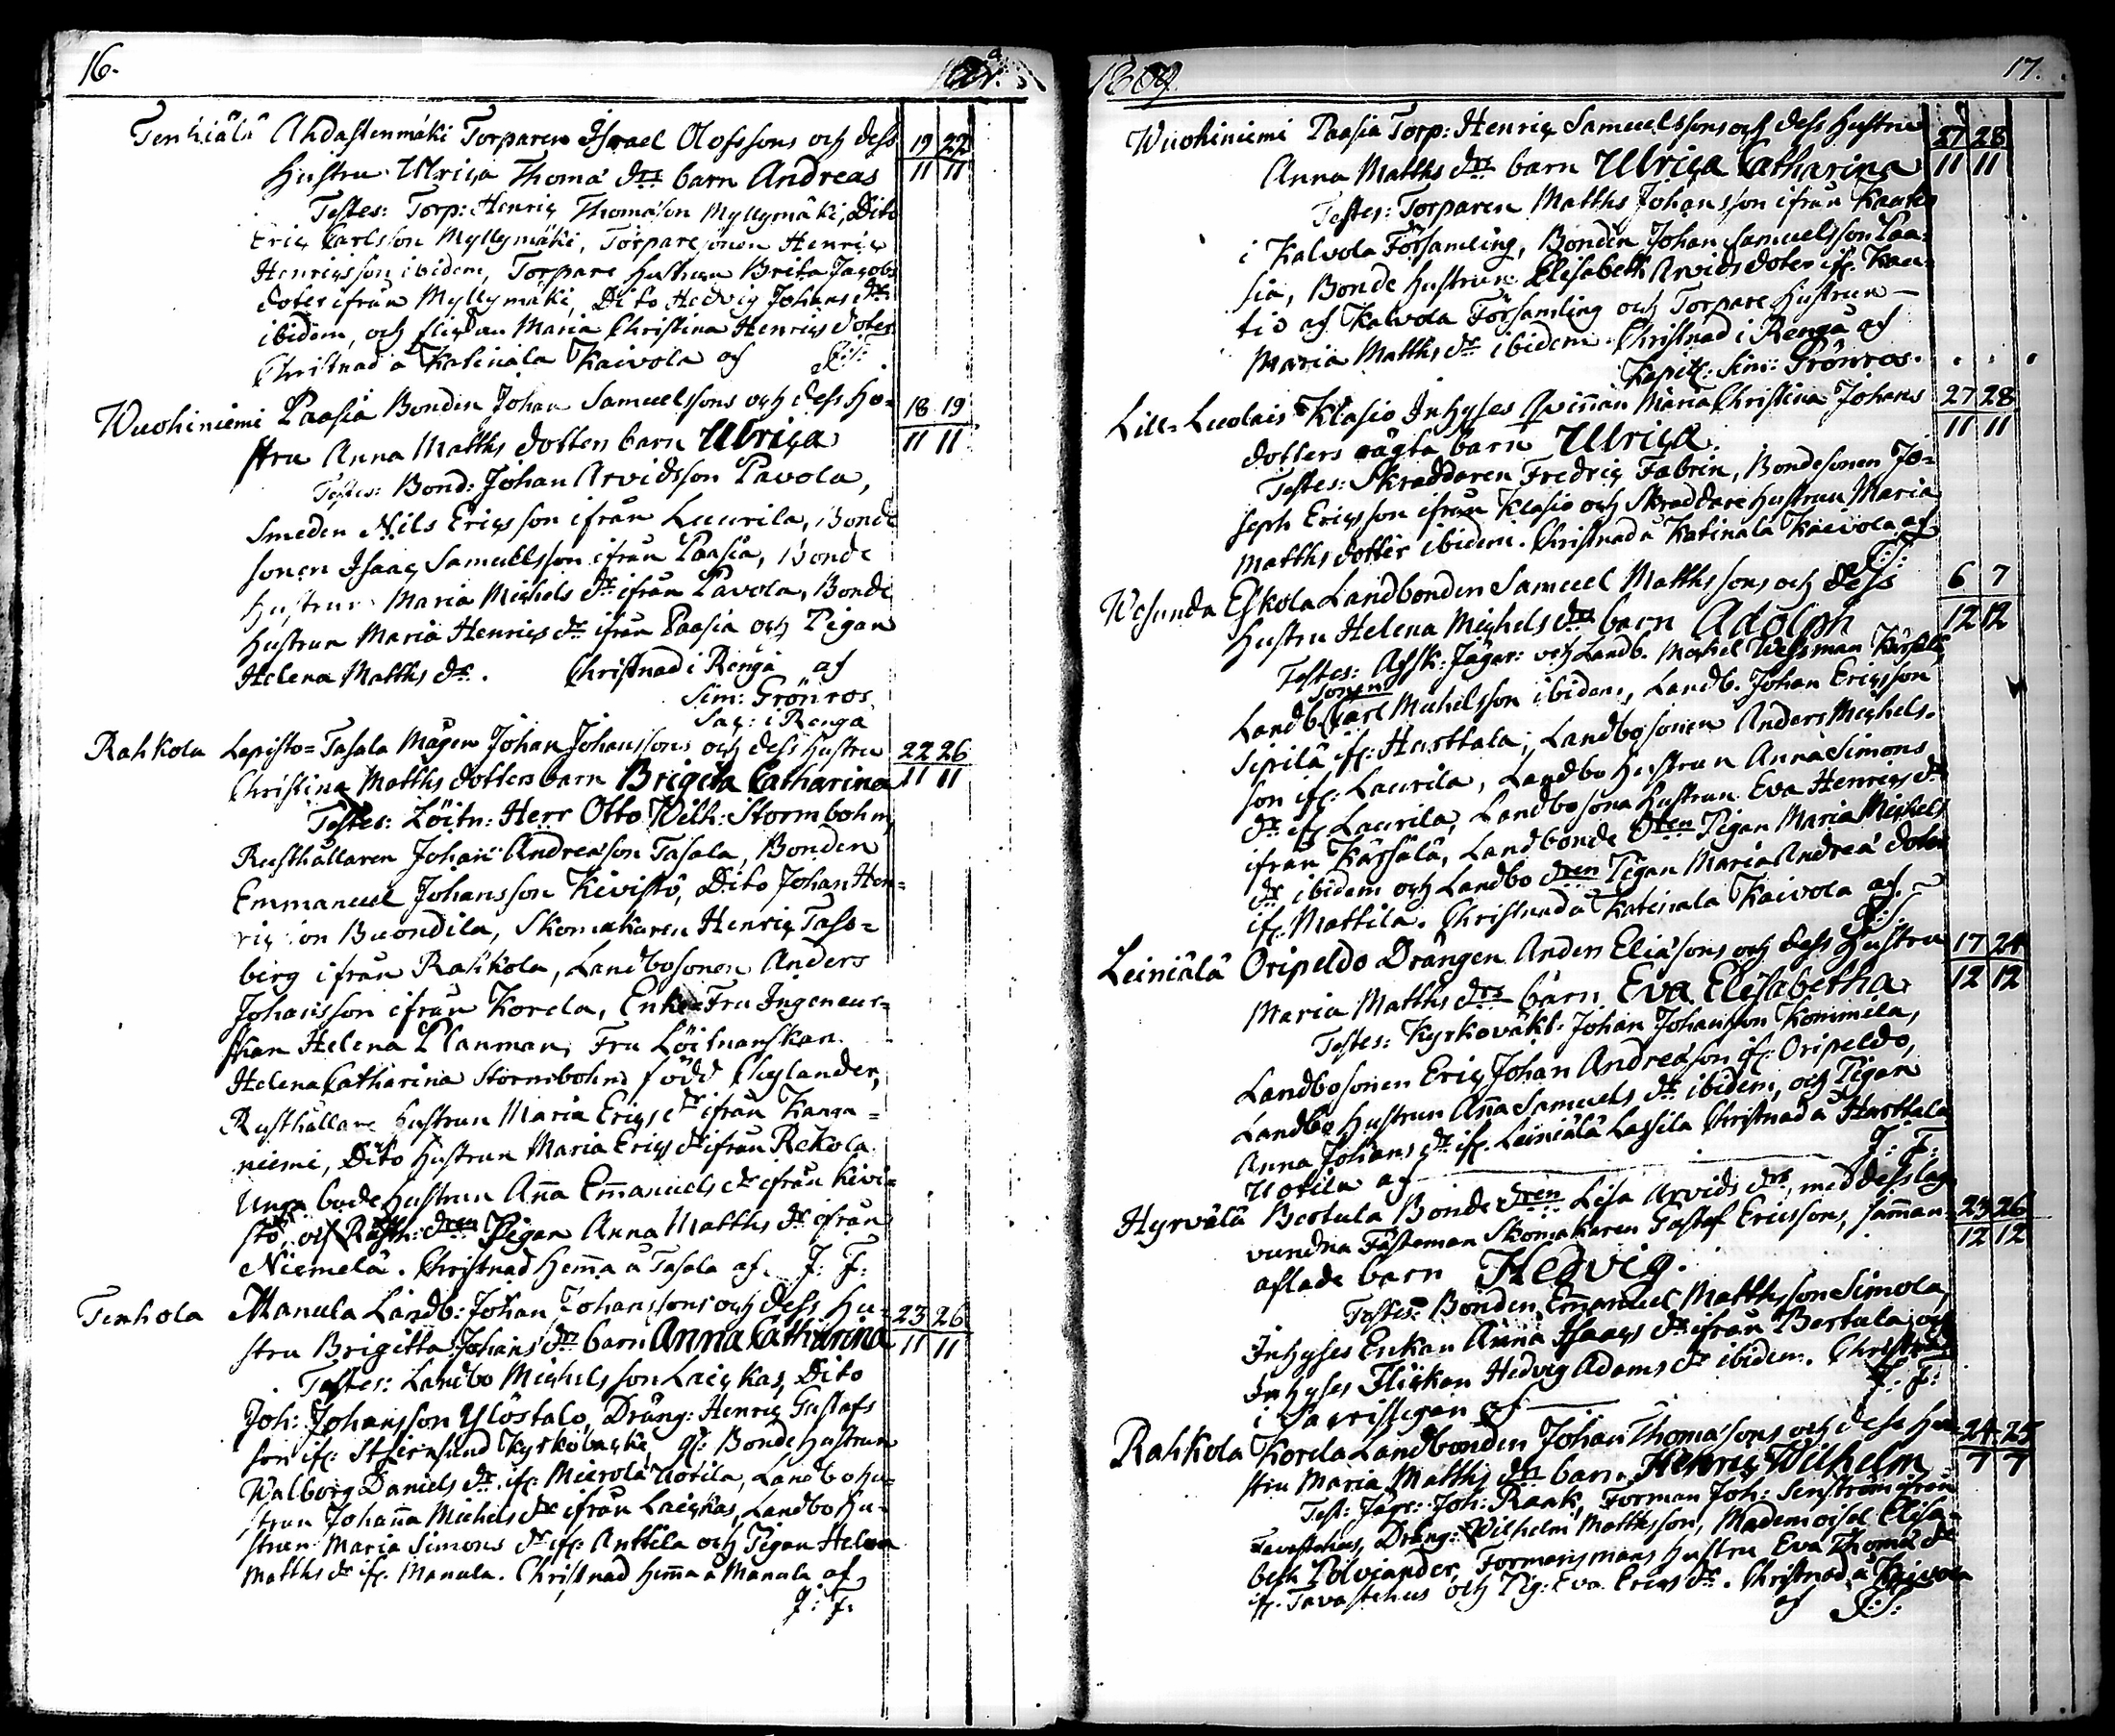 16.
Tenhiälä Ahdastenmäki Torparen Israel Olofssons och dess 19 22
Hustru Ulrica Thomæ drs barn Andreas 11 11
Testes: Torp: Henric Thomæson Myllymäki, Dito
Eric Carlsson Myllymäki, Torparesonen Henric
Henricsson ibidem, Torpare Hustrun Brita Jacobs
doter ifrån Myllymäki, Dito Hedvig Johans dr
ibidem, och flickan Maria Christina Henrics doter
Christnad å Katinala Kaivola af
Wuohiniemi Paasia Bonden Johan Samuelssons och dess Hu= 18 19
stru Anna Matths dotters barn Ulrica 11 11
Testes: Bond: Johan Arvidsson Pavola,
Smeden Nils Ericsson ifrån Luurila, Bonde
sonen Isaac Samuelsson ifrån Paasia, Bonde
Hustrun Maria Michels dr ifrån Pavola, Bonde
Hustrun Maria Henrics dr ifrån Paasia och Pigan
Helena Matths dr. Christnad i Rengå af
Sim: Grönroos
Sac: i Renga
Rahkola Lepisto=Tasala Mågen Johan Johanssons och dess Hustru 22 26
Christina Matths dotters barn Brigita Catharina 11 11
Testes: Löitn: Herr Otto Wilh: Stormbohm,
Rusthållaren Johan Andreæson Tasala, Bonden
Emmanuel Johansson Kivistö, Dito Johan Hen=
ricson Buondila, Skomakaren Henric Tass=
berg ifrån Rahkola, Landbosonen Anders
Johansson ifrån Korela, Enke Fru Ingeneur=
skan Helena Planman, Fru Löitnanskan
Helena Catharina Stormbohm född Chylander,
Rusthållare Hustrun Maria Erics dr ifrån Kanga=
niemi, Dito Hustrun Maria Erics dr ifrån Rekola
Unga bonde Hustrun Anna Emanuels dr ifrån Kivi=
stö, och Rusth: dren Pigan Anna Matths dr ifrån
Niemelä. Christnad hemma å Tasala af J: F:
Tenhola Manula Landb: Johan Johanssons och dess Hu= 23 26
stru Brigitta Johans drs barn Anna Catharina 11 11
Testes: Landbo Michelsson Laickas, Dito
Joh: Johansson Ylöstalo, Dräng: Henric Gustafs
son ifr. Stjernsund Kyrkobacke, Bonde Hustrun
Walborg Daniels dr ifr. Mierola Uotila, Landbo Hu=
strun Johanna Michels dr ifrån Laickas, Landbo Hu=
strun Maria Simons dr ifr. Anttila och Pigan Helena
Matths dr ifr. Manula. Christnad hemma å Manula af
J: F:
1809. 17.
Wuohiniemi Paasia Torp: Henric Samuelssons och dess Hustru 27 28
Anna Matths drs barn Ulrica Catharina 11 11
Testes: Torparen Matths Johansson ifrån
i Kalvola Församling, Bonden Johan Samuelsson Paa=
sia, Bonde Hustrun Elisabeth Arvids doter ifr. Kau=
tio af Kalvola Församling och Torpare Hustrun
Maria Matths dr ibidem. Christnad i Rengå af
Sim: Grönroos.
Lill=Luolais Klasio Inhyses Qvinnan Maria Christina Johans 27 28
dotters oägta barn Ulrica 11 11
Testes: Skraddaren Fredric Fabrin, Bondesonen Jo=
seph Ericsson ifrån Klasio och Skraddare Hustrun Maria
Matths dotter ibidem. Christnad å Katinala Kaivola af
Wesunda Eskola Landbonden Samuel Matthssons och dess 6 7
Hustru Helena Michels drs barn Adolph 12 12
Testes: Afsk: Jägar: och Landb. Michel Wessman Kärsalä,
Landb. sonen Carl Michelsson ibidem, Landb. Johan Ericsson
Sipilä ifr. Harttala, Landbosonen Anders Michels=
son ifr. Laurila, Landbo Hustrun Anna Simons
dr ifr. Laurila, Landbosona Hustrun Eva Henrics dr
ifrån Kärsalä, Landbonde dren Pigan Maria Michels
dr ibidem och Landbo dren Pigan Maria Andreæ doter
ifr. Mattila. Christnad å Katinala Kaivola af
Leiniälä Oripeldo Drängen Anders Eliæsons och dess Hustru 17 24
Maria Matths drs barn Eva Elisabetha 12 12
Testes: Kyrkoväkt: Johan Johansson Kommila,
Landbosonen Eric Johan Andreæson ifr. Oripeldo,
Landbo Hustrun Anna Samuels dr ibidem, och Pigan
Anna Johans dr ifr. Leiniälä Lassila Christnad å Harttala
Uotila af J: F:
Hyrvälä Bertula Bonde dren Lisa Arvids drs, med dess lag= 23 26
vundna Fästeman Skomakaren Gustaf Ericssons, samman= 12 12
aflade barn Hedvig.
Testes: Bonden Emanuel Matthsson Simola,
Inhyses Enkan Anna Isaacs dr ifrån Bertula och
Inhyses Flickan Hedvig Adams dr ibidem. Christnad
i Sacristigan af J: F:
Rahkola Korela Landbonden Johan Thomæsons och dess Hu= 24 25
stru Maria Matths drs barn Henric Wilhelm 7 7
Test: Jäger: Joh: Raak, Forman Joh: Senström ifrån
Tavastehus, Dräng: Wilhelm Matthsson, Mademoisel Elisa=
beth Polviander, Formansmans Hustru Eva Thomæ dr
ifr. Tavastehus och Pig: Eva Erics dr. Christnad å Kaivola
af